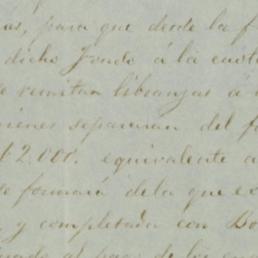 as, para que desde la f
dicho fondo á la
se remitan libranzas á
quienes separarán del f
$2.000. equivalente a
se formará de la que ex
y completada con Bo